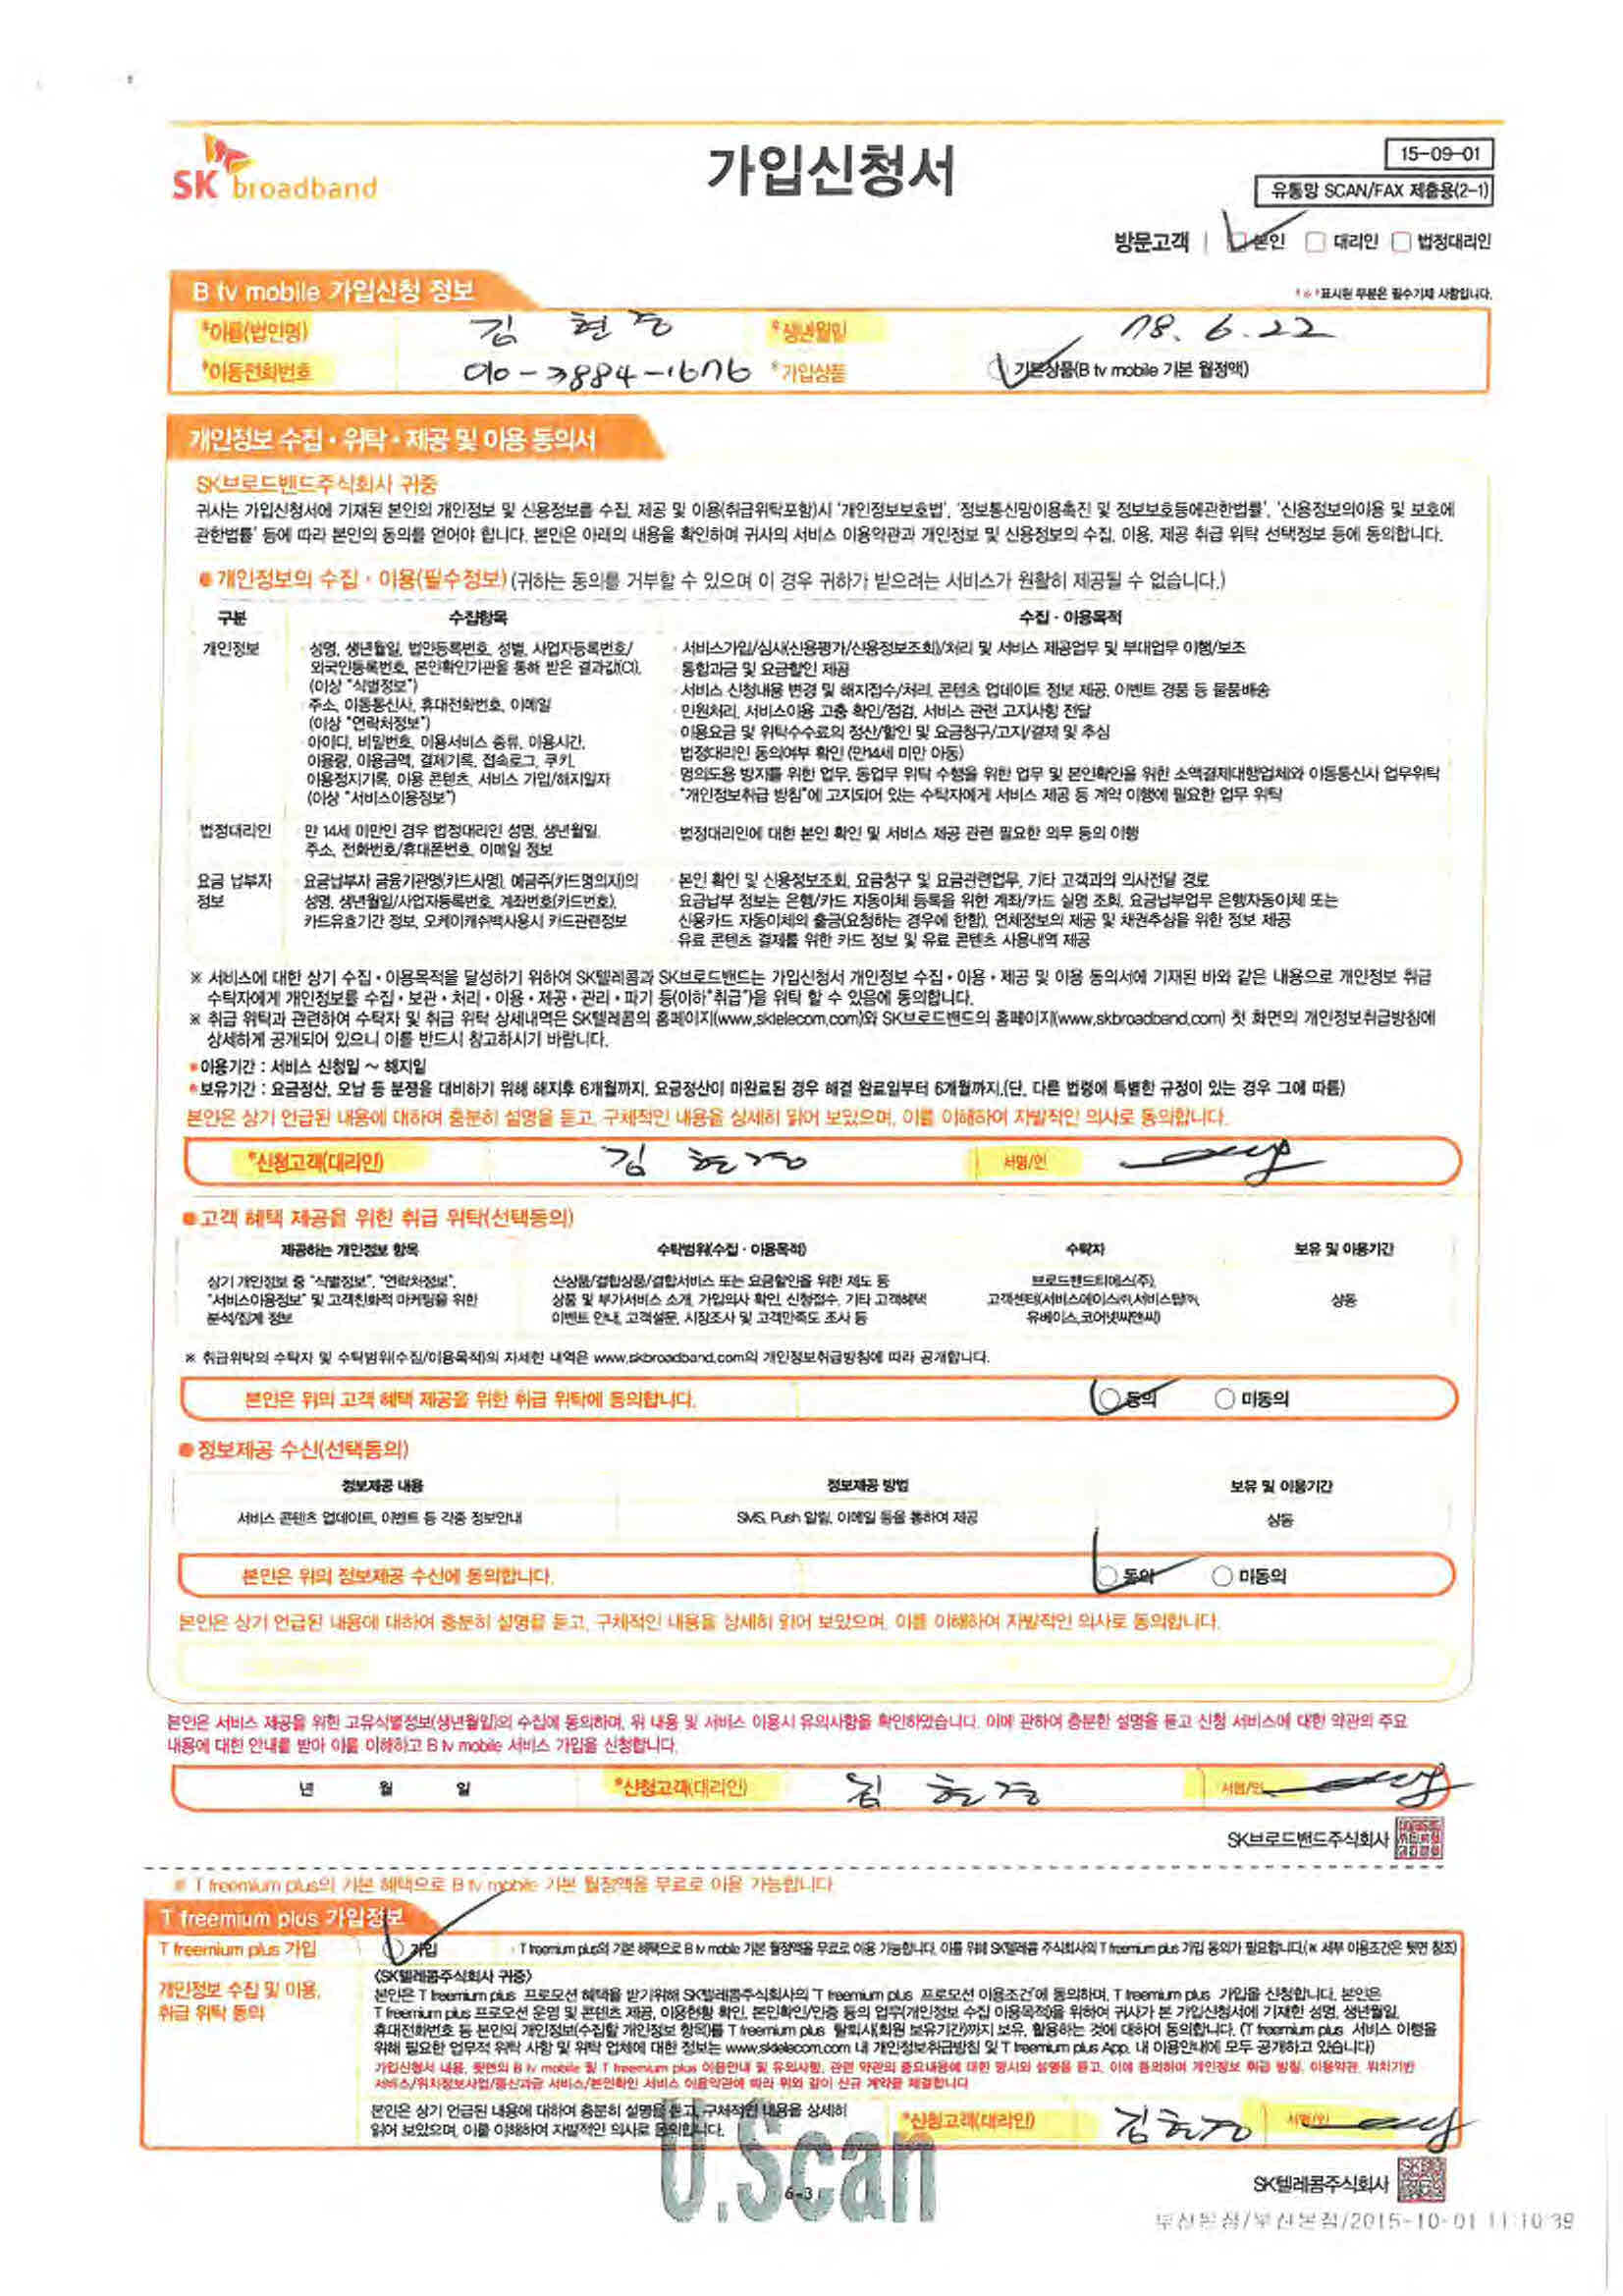 SK broadband
가입신청서
15-09-01
유통망 SCAN/FAX 제출용(2-1)
방문고객 | 본인 대리인 법정대리인
B tv mobile 가입신청 정보
"*"표시된 부분은 필수기재 사항입니다.
*이름(법인명) 김 현 중 *생년월일 78. 6. 22
*이동전화번호 010-3884-1676 *가입상품 기본상품(B tv mobile 기본 월정액)
개인정보 수집·위탁·제공 및 이용 동의서
SK브로드밴드주식회사 귀중
귀사는 가입신청서에 기재된 본인의 개인정보 및 신용정보를 수집, 제공 및 이용(취급위탁포함)시 '개인정보보호법', '정보통신망이용촉진 및 정보보호등에관한법률', '신용정보의이용 및 보호에
관한법률' 등에 따라 본인의 동의를 얻어야 합니다. 본인은 아래의 내용을 확인하며 귀사의 서비스 이용약관과 개인정보 및 신용정보의 수집, 이용, 제공 취급 위탁 선택정보 등에 동의합니다.
● 개인정보의 수집·이용(필수정보) (귀하는 동의를 거부할 수 있으며 이 경우 귀하가 받으려는 서비스가 원활히 제공될 수 없습니다.)
구분 수집항목 수집·이용목적
개인정보
성명, 생년월일, 법인등록번호, 성별, 사업자등록번호/
외국인등록번호, 본인확인기관을 통해 받은 결과값(CI),
(이상 "식별정보")
주소, 이동통신사, 휴대전화번호, 이메일
(이상 "연락처정보")
아이디, 비밀번호, 이용서비스 종류, 이용시간,
이용량, 이용금액, 결제기록, 접속로그, 쿠키,
이용정지기록, 이용 콘텐츠, 서비스 가입/해지일자
(이상 "서비스이용정보")
서비스가입/심사(신용평가/신용정보조회)/처리 및 서비스 제공업무 및 부대업무 이행/보조
통합과금 및 요금할인 제공
서비스 신청내용 변경 및 해지접수/처리, 콘텐츠 업데이트 정보 제공, 이벤트 경품 등 물품배송
민원처리, 서비스이용 고충 확인/점검, 서비스 관련 고지사항 전달
이용요금 및 위탁수수료의 정산/할인 및 요금청구/고지/결제 및 추심
법정대리인 동의여부 확인 (만14세 미만 아동)
명의도용 방지를 위한 업무, 동업무 위탁 수행을 위한 업무 및 본인확인을 위한 소액결제대행업체와 이동통신사 업무위탁
"개인정보취급 방침"에 고지되어 있는 수탁자에게 서비스 제공 등 계약 이행에 필요한 업무 위탁
법정대리인
만 14세 미만인 경우 법정대리인 성명, 생년월일,
주소, 전화번호/휴대폰번호, 이메일 정보
법정대리인에 대한 본인 확인 및 서비스 제공 관련 필요한 의무 등의 이행
요금 납부자
정보
요금납부자 금융기관명(카드사명), 예금주(카드명의자)의
성명, 생년월일/사업자등록번호, 계좌번호(카드번호),
카드유효기간 정보, 오케이캐쉬백사용시 카드관련정보
본인 확인 및 신용정보조회, 요금청구 및 요금관련업무, 기타 고객과의 의사전달 경로
요금납부 정보는 은행/카드 자동이체 등록을 위한 계좌/카드 실명 조회, 요금납부업무 은행자동이체 또는
신용카드 자동이체의 출금(요청하는 경우에 한함), 연체정보의 제공 및 채권추심을 위한 정보 제공
유료 콘텐츠 결제를 위한 카드 정보 및 유료 콘텐츠 사용내역 제공
※ 서비스에 대한 상기 수집·이용목적을 달성하기 위하여 SK텔레콤과 SK브로드밴드는 가입신청서 개인정보 수집·이용·제공 및 이용 동의서에 기재된 바와 같은 내용으로 개인정보 취급
수탁자에게 개인정보를 수집·보관·처리·이용·제공·관리·파기 등(이하"취급")을 위탁 할 수 있음에 동의합니다.
※ 취급 위탁과 관련하여 수탁자 및 취급 위탁 상세내역은 SK텔레콤의 홈페이지(www.sktelecom.com)와 SK브로드밴드의 홈페이지(www.skbroadband.com) 첫 화면의 개인정보취급방침에
상세하게 공개되어 있으니 이를 반드시 참고하시기 바랍니다.
●이용기간 : 서비스 신청일 ~ 해지일
●보유기간 : 요금정산, 오납 등 분쟁을 대비하기 위해 해지후 6개월까지, 요금정산이 미완료된 경우 해결 완료일부터 6개월까지.(단, 다른 법령에 특별한 규정이 있는 경우 그에 따름)
본인은 상기 언급된 내용에 대하여 충분히 설명을 듣고, 구체적인 내용을 상세히 읽어 보았으며, 이를 이해하여 자발적인 의사로 동의합니다.
*신청고객(대리인) 김 현 중 서명/인
●고객 혜택 제공을 위한 취급 위탁(선택동의)
제공하는 개인정보 항목 수탁범위(수집·이용목적) 수탁자 보유 및 이용기간
상기 개인정보 중 "식별정보", "연락처정보",
"서비스이용정보" 및 고객친화적 마케팅을 위한
분석/집계 정보
신상품/결합상품/결합서비스 또는 요금할인을 위한 제도 등
상품 및 부가서비스 소개, 가입의사 확인, 신청접수, 기타 고객혜택
이벤트 안내, 고객설문, 시장조사 및 고객만족도 조사 등
브로드밴드티에스(주),
고객센터(서비스에이스㈜,서비스탑㈜,
유베이스,코어넷씨앤씨)
상동
※ 취급위탁의 수탁자 및 수탁범위(수집/이용목적)의 자세한 내역은 www.skbroadband.com의 개인정보취급방침에 따라 공개합니다.
본인은 위의 고객 혜택 제공을 위한 취급 위탁에 동의합니다. 동의 미동의
●정보제공 수신(선택동의)
정보제공 내용 정보제공 방법 보유 및 이용기간
서비스 콘텐츠 업데이트, 이벤트 등 각종 정보안내 SMS, Push 알림, 이메일 등을 통하여 제공 상동
본인은 위의 정보제공 수신에 동의합니다. 동의 미동의
본인은 상기 언급된 내용에 대하여 충분히 설명을 듣고, 구체적인 내용을 상세히 읽어 보았으며, 이를 이해하여 자발적인 의사로 동의합니다.
본인은 서비스 제공을 위한 고유식별정보(생년월일)의 수집에 동의하며, 위 내용 및 서비스 이용시 유의사항을 확인하였습니다. 이에 관하여 충분한 설명을 듣고 신청 서비스에 대한 약관의 주요
내용에 대한 안내를 받아 이를 이해하고 B tv mobile 서비스 가입을 신청합니다.
년 월 일 *신청고객(대리인) 김 현 중 서명/인
SK브로드밴드주식회사
※ T freemium plus의 기본 혜택으로 B tv mobile 기본 월정액을 무료로 이용 가능합니다.
T freemium plus 가입정보
T freemium plus 가입 가입 T freemium plus의 기본 혜택으로 B tv mobile 기본 월정액을 무료로 이용 가능합니다. 이를 위해 SK텔레콤 주식회사의 T freemium plus 가입 동의가 필요합니다.(※ 세부 이용조건은 뒷면 참조)
개인정보 수집 및 이용,
취급 위탁 동의
〈SK텔레콤주식회사 귀중〉
본인은 T freemium plus 프로모션 혜택을 받기위해 SK텔레콤주식회사의 'T freemium plus 프로모션 이용조건'에 동의하며, T freemium plus 가입을 신청합니다. 본인은
T freemium plus 프로모션 운영 및 콘텐츠 제공, 이용현황 확인, 본인확인/인증 등의 업무(개인정보 수집 이용목적)을 위하여 귀사가 본 가입신청서에 기재한 성명, 생년월일,
휴대전화번호 등 본인의 개인정보(수집할 개인정보 항목)를 T freemium plus 탈퇴시(회원 보유기간)까지 보유, 활용하는 것에 대하여 동의합니다. (T freemium plus 서비스 이행을
위해 필요한 업무적 위탁 사항 및 위탁 업체에 대한 정보는 www.sktelecom.com 내 개인정보취급방침 및 T freemium plus App. 내 이용안내에 모두 공개하고 있습니다)
가입신청서 내용, 뒷면의 B tv mobile 및 T freemium plus 이용안내 및 유의사항, 관련 약관의 중요내용에 대한 명시와 설명을 듣고, 이에 동의하며 개인정보 취급 방침, 이용약관, 위치기반
서비스/위치정보사업/통신과금 서비스/본인확인 서비스 이용약관에 따라 위와 같이 신규 계약을 체결합니다
본인은 상기 언급된 내용에 대하여 충분히 설명을 듣고, 구체적인 내용을 상세히
읽어 보았으며, 이를 이해하여 자발적인 의사로 동의합니다.
*신청고객(대리인) 김현중 서명/인
U.Scan
6-3
SK텔레콤주식회사
부산본점/2015-10-01 11:10:39